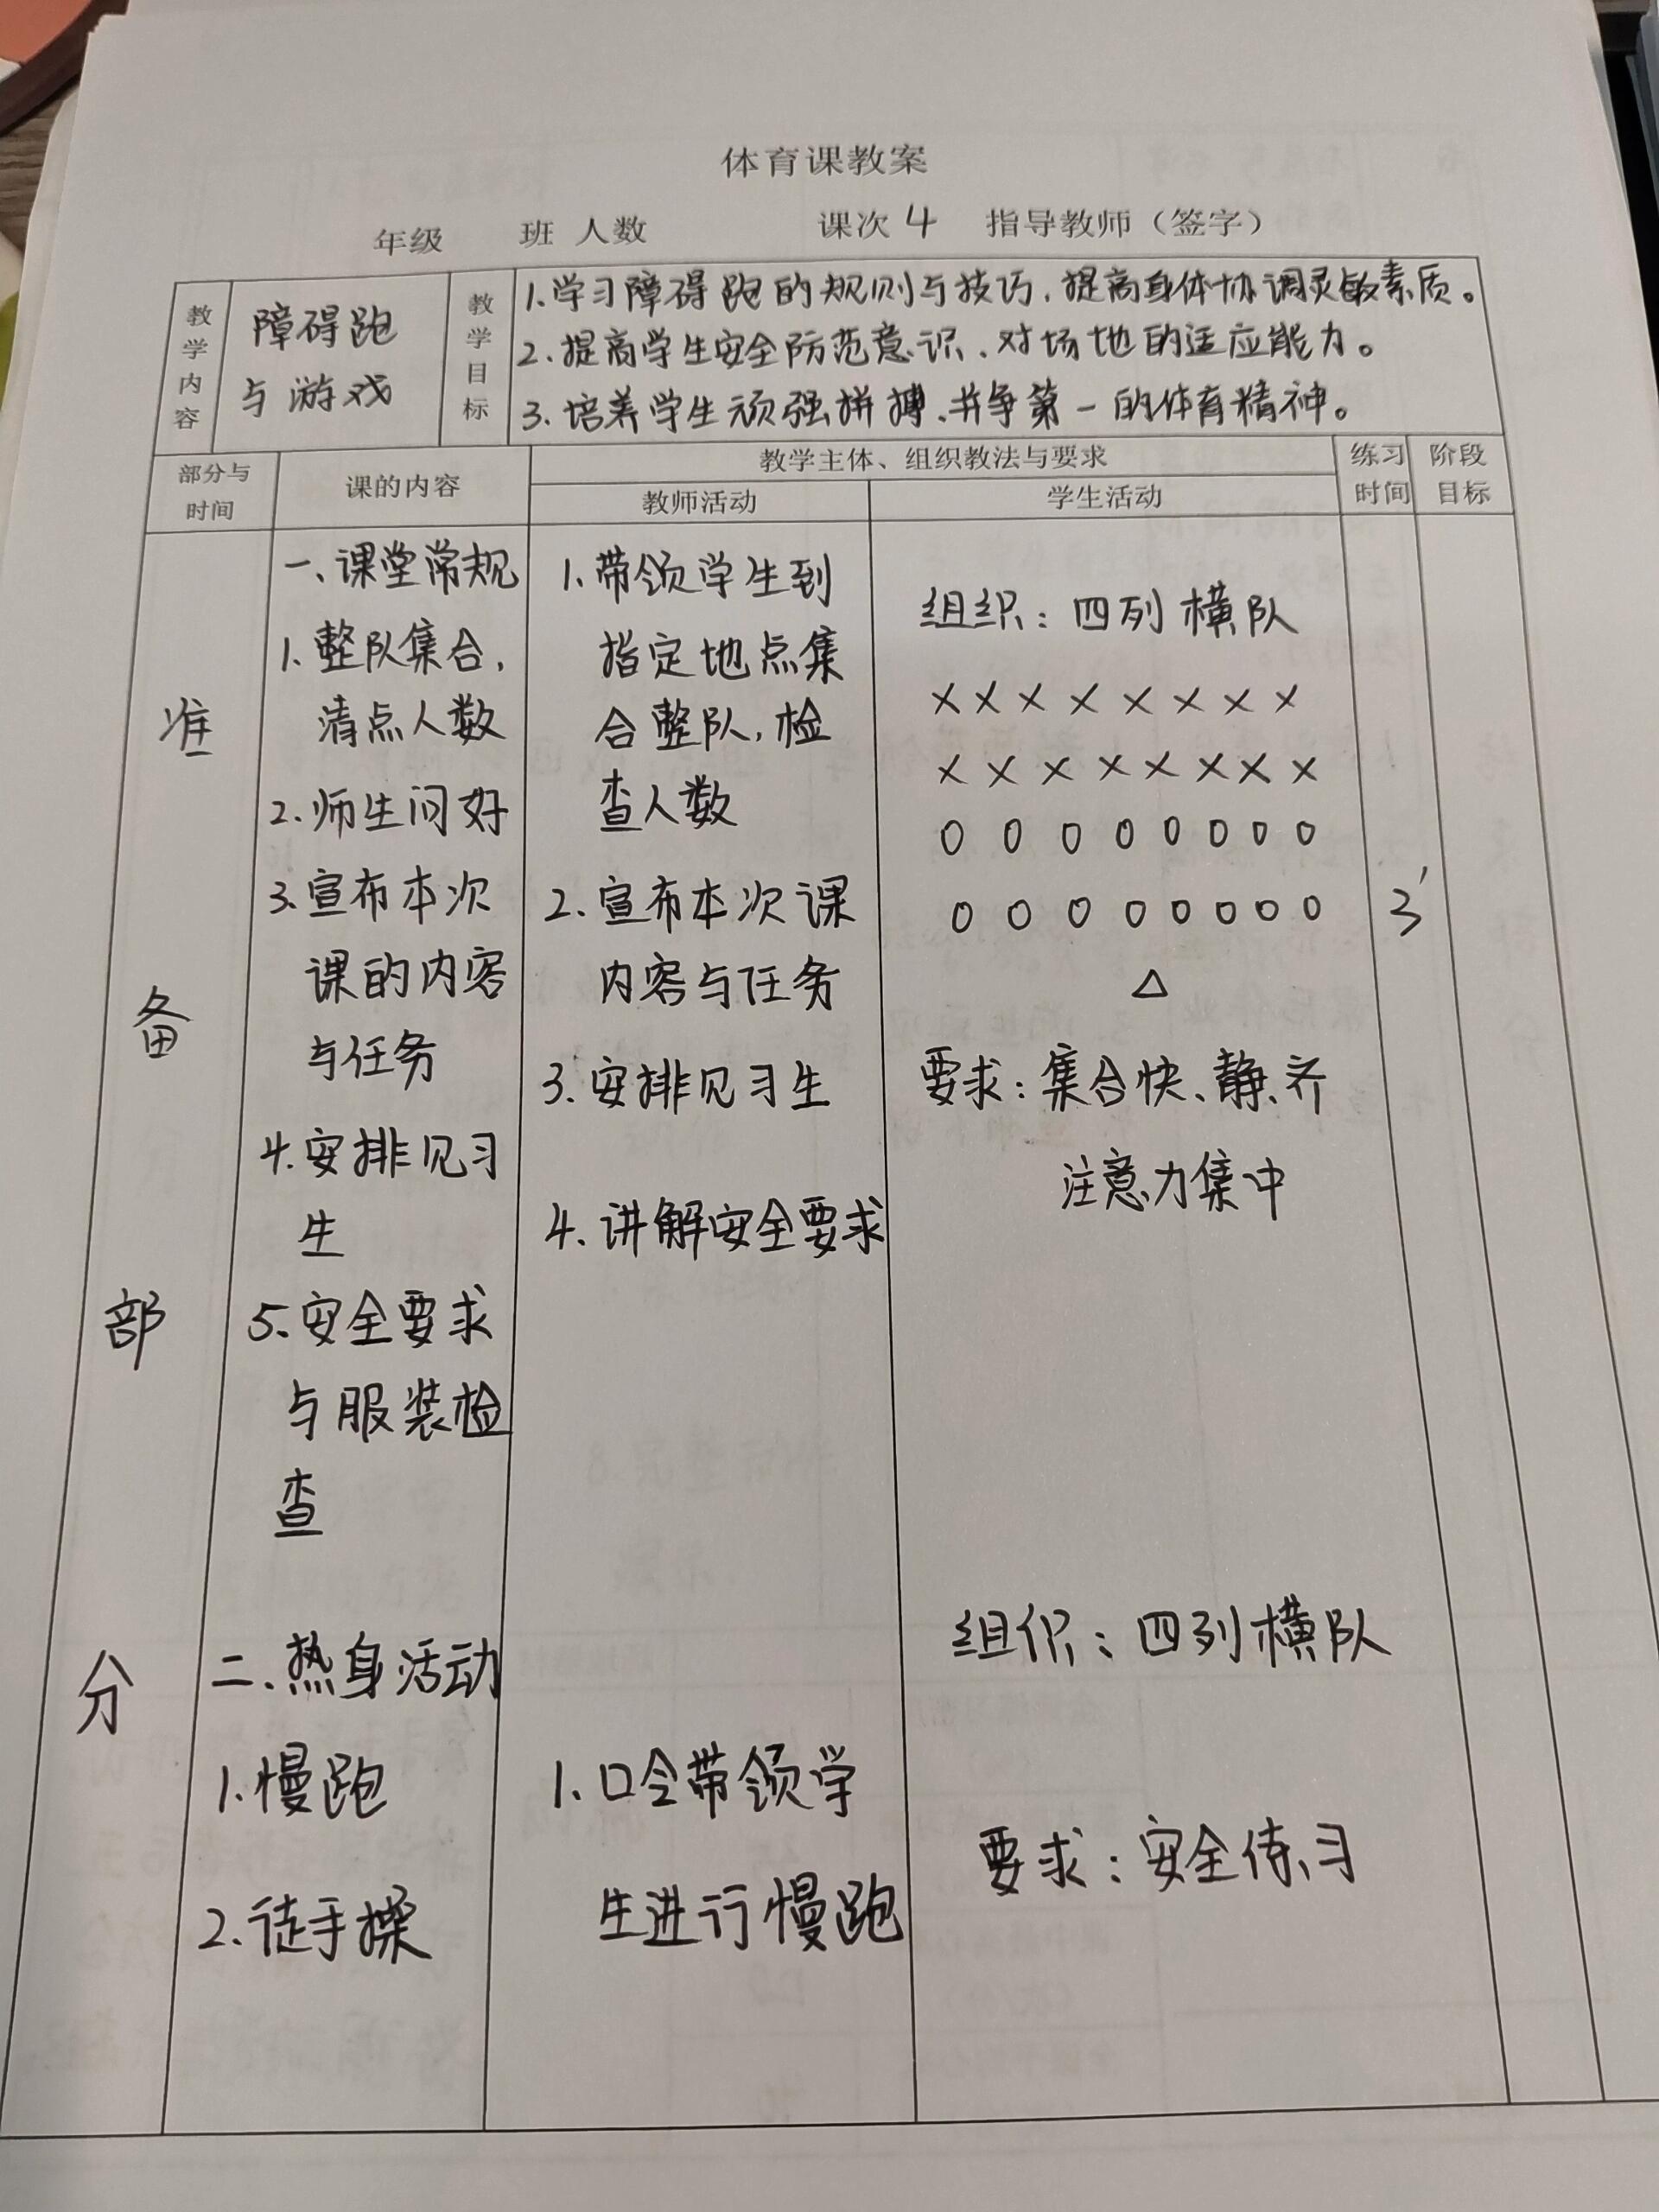 体育课教案
年级 班 人数 课次 4 指导教师（签字）
教学内容
障碍跑
与游戏
教学目标
1.学习障碍跑的规则与技巧，提高身体协调灵敏素质。
2.提高学生安全防范意识、对场地的适应能力。
3.培养学生顽强拼搏、并争第一的体育精神。
部分与
时间
课的内容
教学主体、组织教法与要求
教师活动
学生活动
练习
时间
阶段
目标
准
备
部
分
一、课堂常规
1.整队集合，
清点人数
2.师生问好
3.宣布本次
课的内容
与任务
4.安排见习
生
5.安全要求
与服装检
查
二、热身活动
1.慢跑
2.徒手操
1.带领学生到
指定地点集
合整队，检
查人数
2.宣布本次课
内容与任务
3.安排见习生
4.讲解安全要求
1.口令带领学
生进行慢跑
组织：四列横队
× × × × × × × ×
× × × × × × × ×
O O O O O O O O
O O O O O O O O
△
要求：集合快、静、齐
注意力集中
组织：四列横队
要求：安全练习
3′